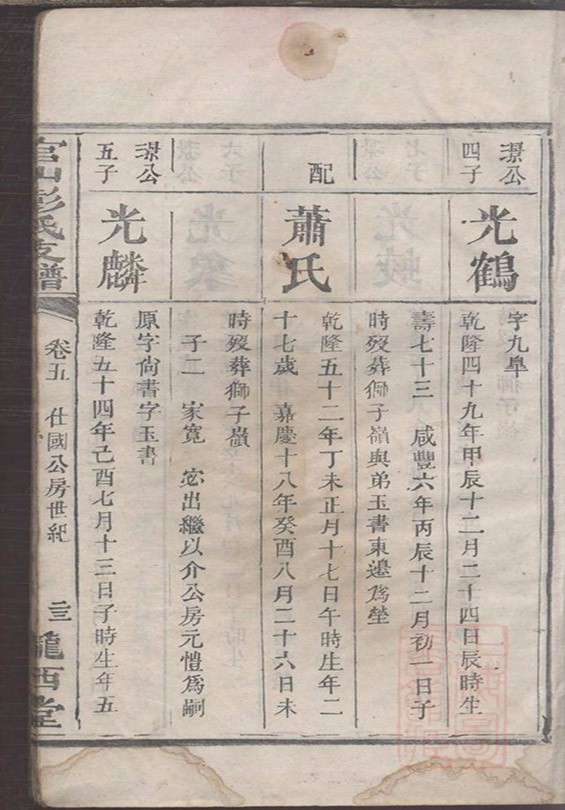 㵾公四子
光鶴
字九臯
乾隆四十九年甲辰十二月二十四日辰時生
壽七十三 咸豐六年丙辰十二月初一日子
時歿葬獅子嶺與弟玉書東邊爲塋
配
蕭氏
乾隆五十二年丁未正月十七日午時生年二
十七歲 嘉慶十八年癸酉八月二十六日未
時歿葬獅子嶺
子二 家寬 宓出繼以介公房元愷爲嗣
㵾公五子
光麟
原字尙書字玉書
乾隆五十四年己酉七月十三日子時生年五
官山彭氏支譜
卷五 仕國公房世紀
隴西堂